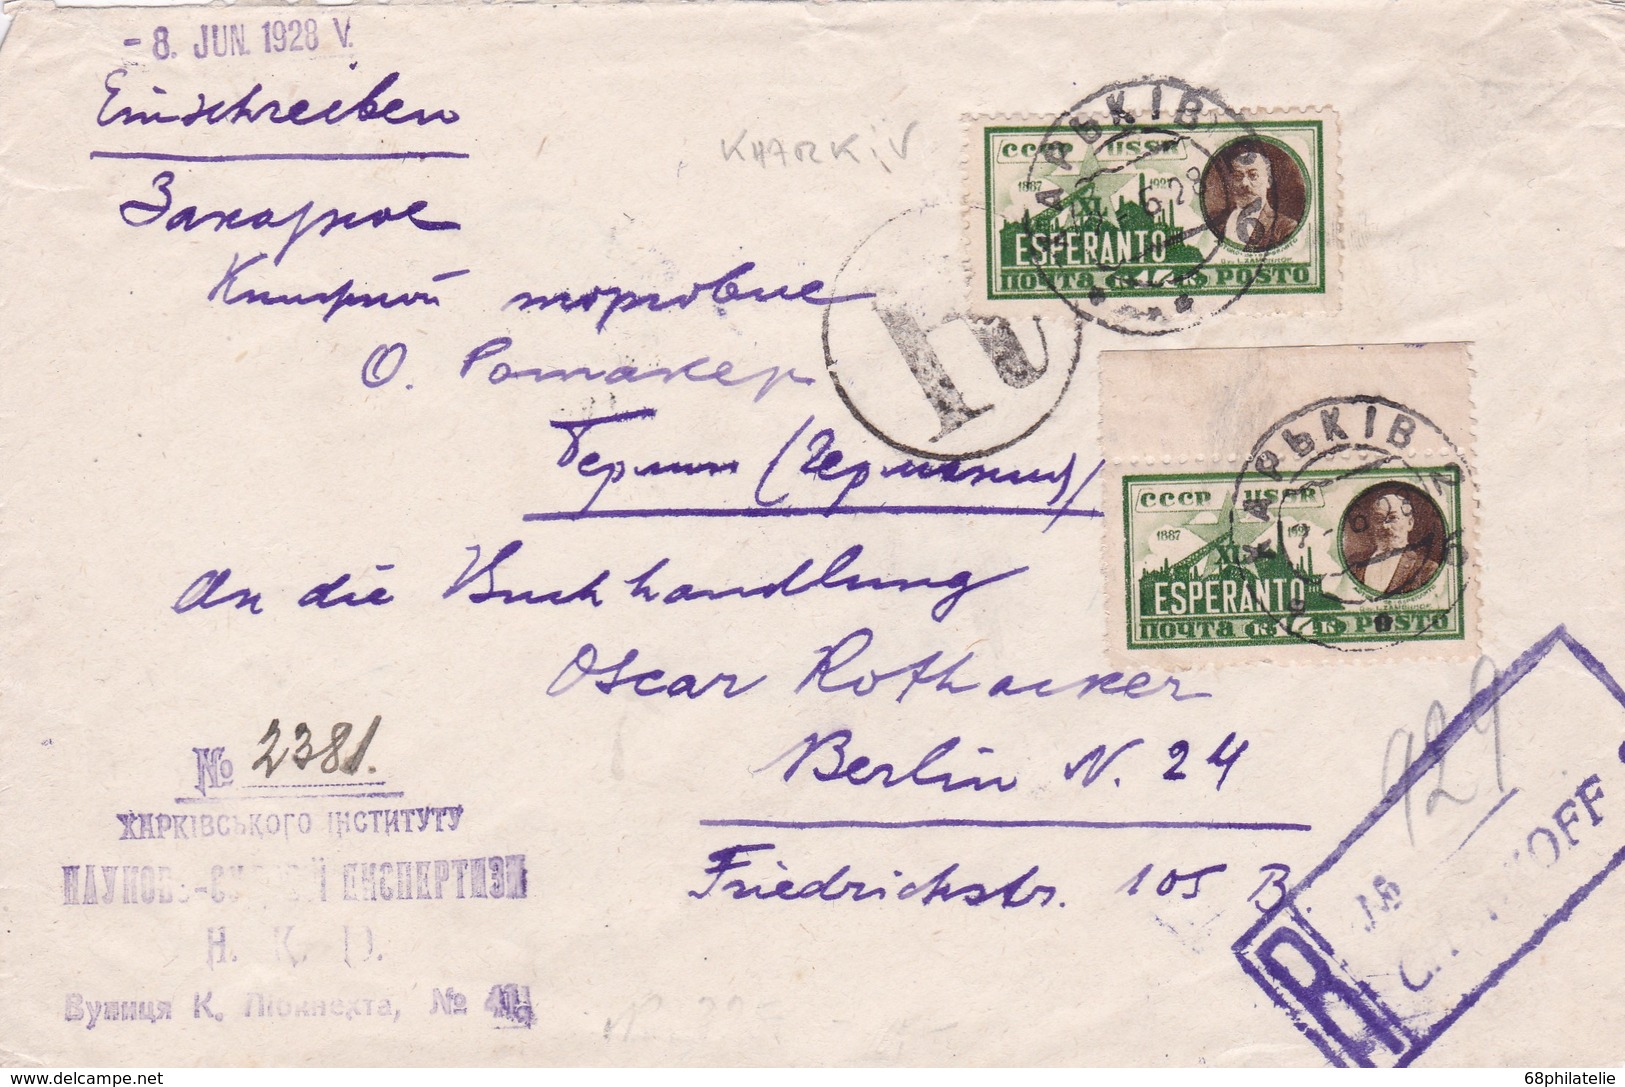 - 8. JUN. 1928 V.
Einschreiben
Заказное
KHARKIV
Книжной торговле
О. Ротакер
Берлин (Германия)
An die Buchhandlung
Oscar Rothacker
Berlin N. 24
Friedrichstr. 105 B
СССР USSR
1887 1927
XL
ESPERANTO
ПОЧТА 14 POSTO
ХАРЬКІВ
6 28
R
СССР USSR
1887
XL
ESPERANTO
ПОЧТА 14 POSTO
ХАРЬКІВ
7 - 6 28
№ 2381.
ХАРКІВСЬКОГО ІНСТИТУТУ
НАУКОВО-СУДОВОЇ ЕКСПЕРТИЗИ
Н. К. Ю.
Вулиця К. Лібкнехта, №
929
R №
68philatelie
www.delcampe.net